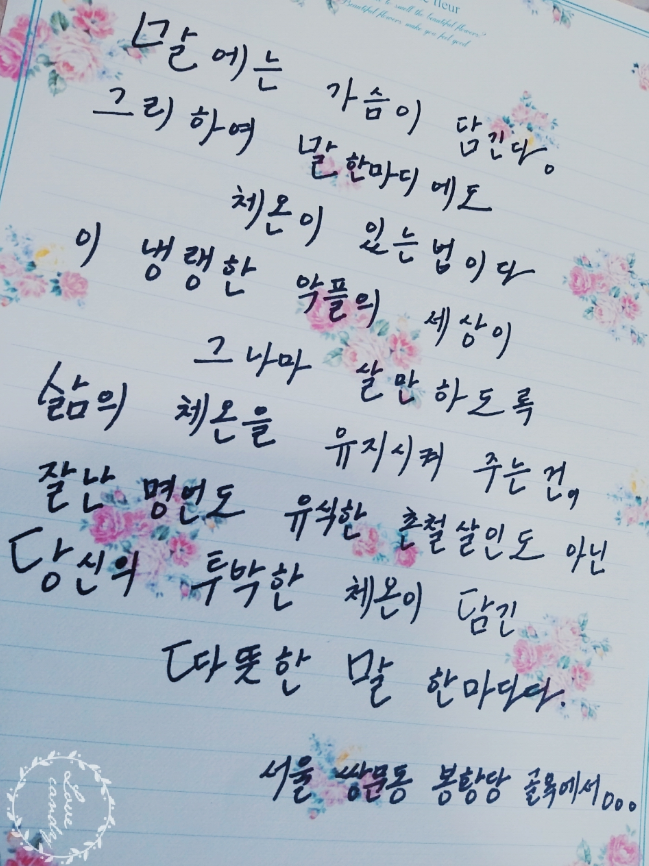 fleur
to smell the beautiful flowers."
Beautiful flowers make you feel good
말에는 가슴이 담긴다.
그리하여 말 한마디에도
체온이 있는 법이다
이 냉랭한 악플의 세상이
그나마 살만하도록
삶의 체온을 유지시켜 주는 건,
잘난 명언도 유식한 촌철살인도 아닌
당신의 투박한 체온이 담긴
따뜻한 말 한마디다.
서울 쌍문동 봉황당 골목에서...
Love
candy